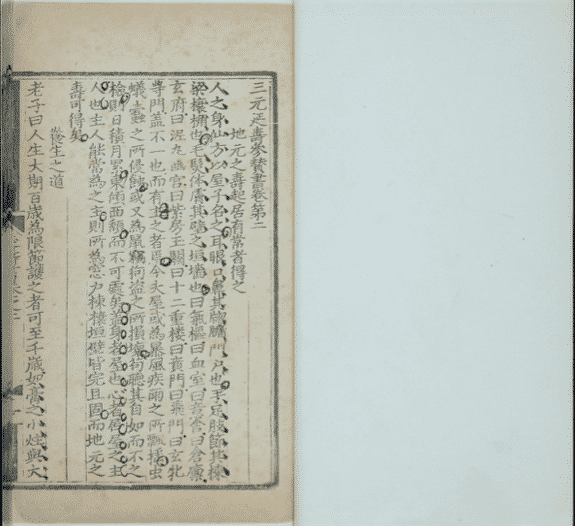 三元延壽參贊書卷第二
地元之壽起居有常者得之
人之身仙方以屋子名之耳眼口鼻其牕牖門戶也手足肢節其棟
梁榱桷也毛髮体膚其壁之垣墻也曰氣樞曰血室曰意舍曰倉廪
玄府曰泥丸絳宮曰紫房玉闕曰十二重楼曰賁門曰飛門曰玄牝
等門盖不一也而有主之者焉今夫屋或為暴風疾雨之所飄搖虫
蟻蠹之所侵蝕或又為鼠竊狗盗之所損壞苟聽其自如而不之
檢則日積月累東傾西頹而不可處矣盖身者屋也心者居屋之主
人也主人能常為之主則所為窓户棟榱垣壁皆完且固而地元之
壽可得矣
養生之道
老子曰人生大期百歲為限節護之者可至千歲如膏之小炷與大